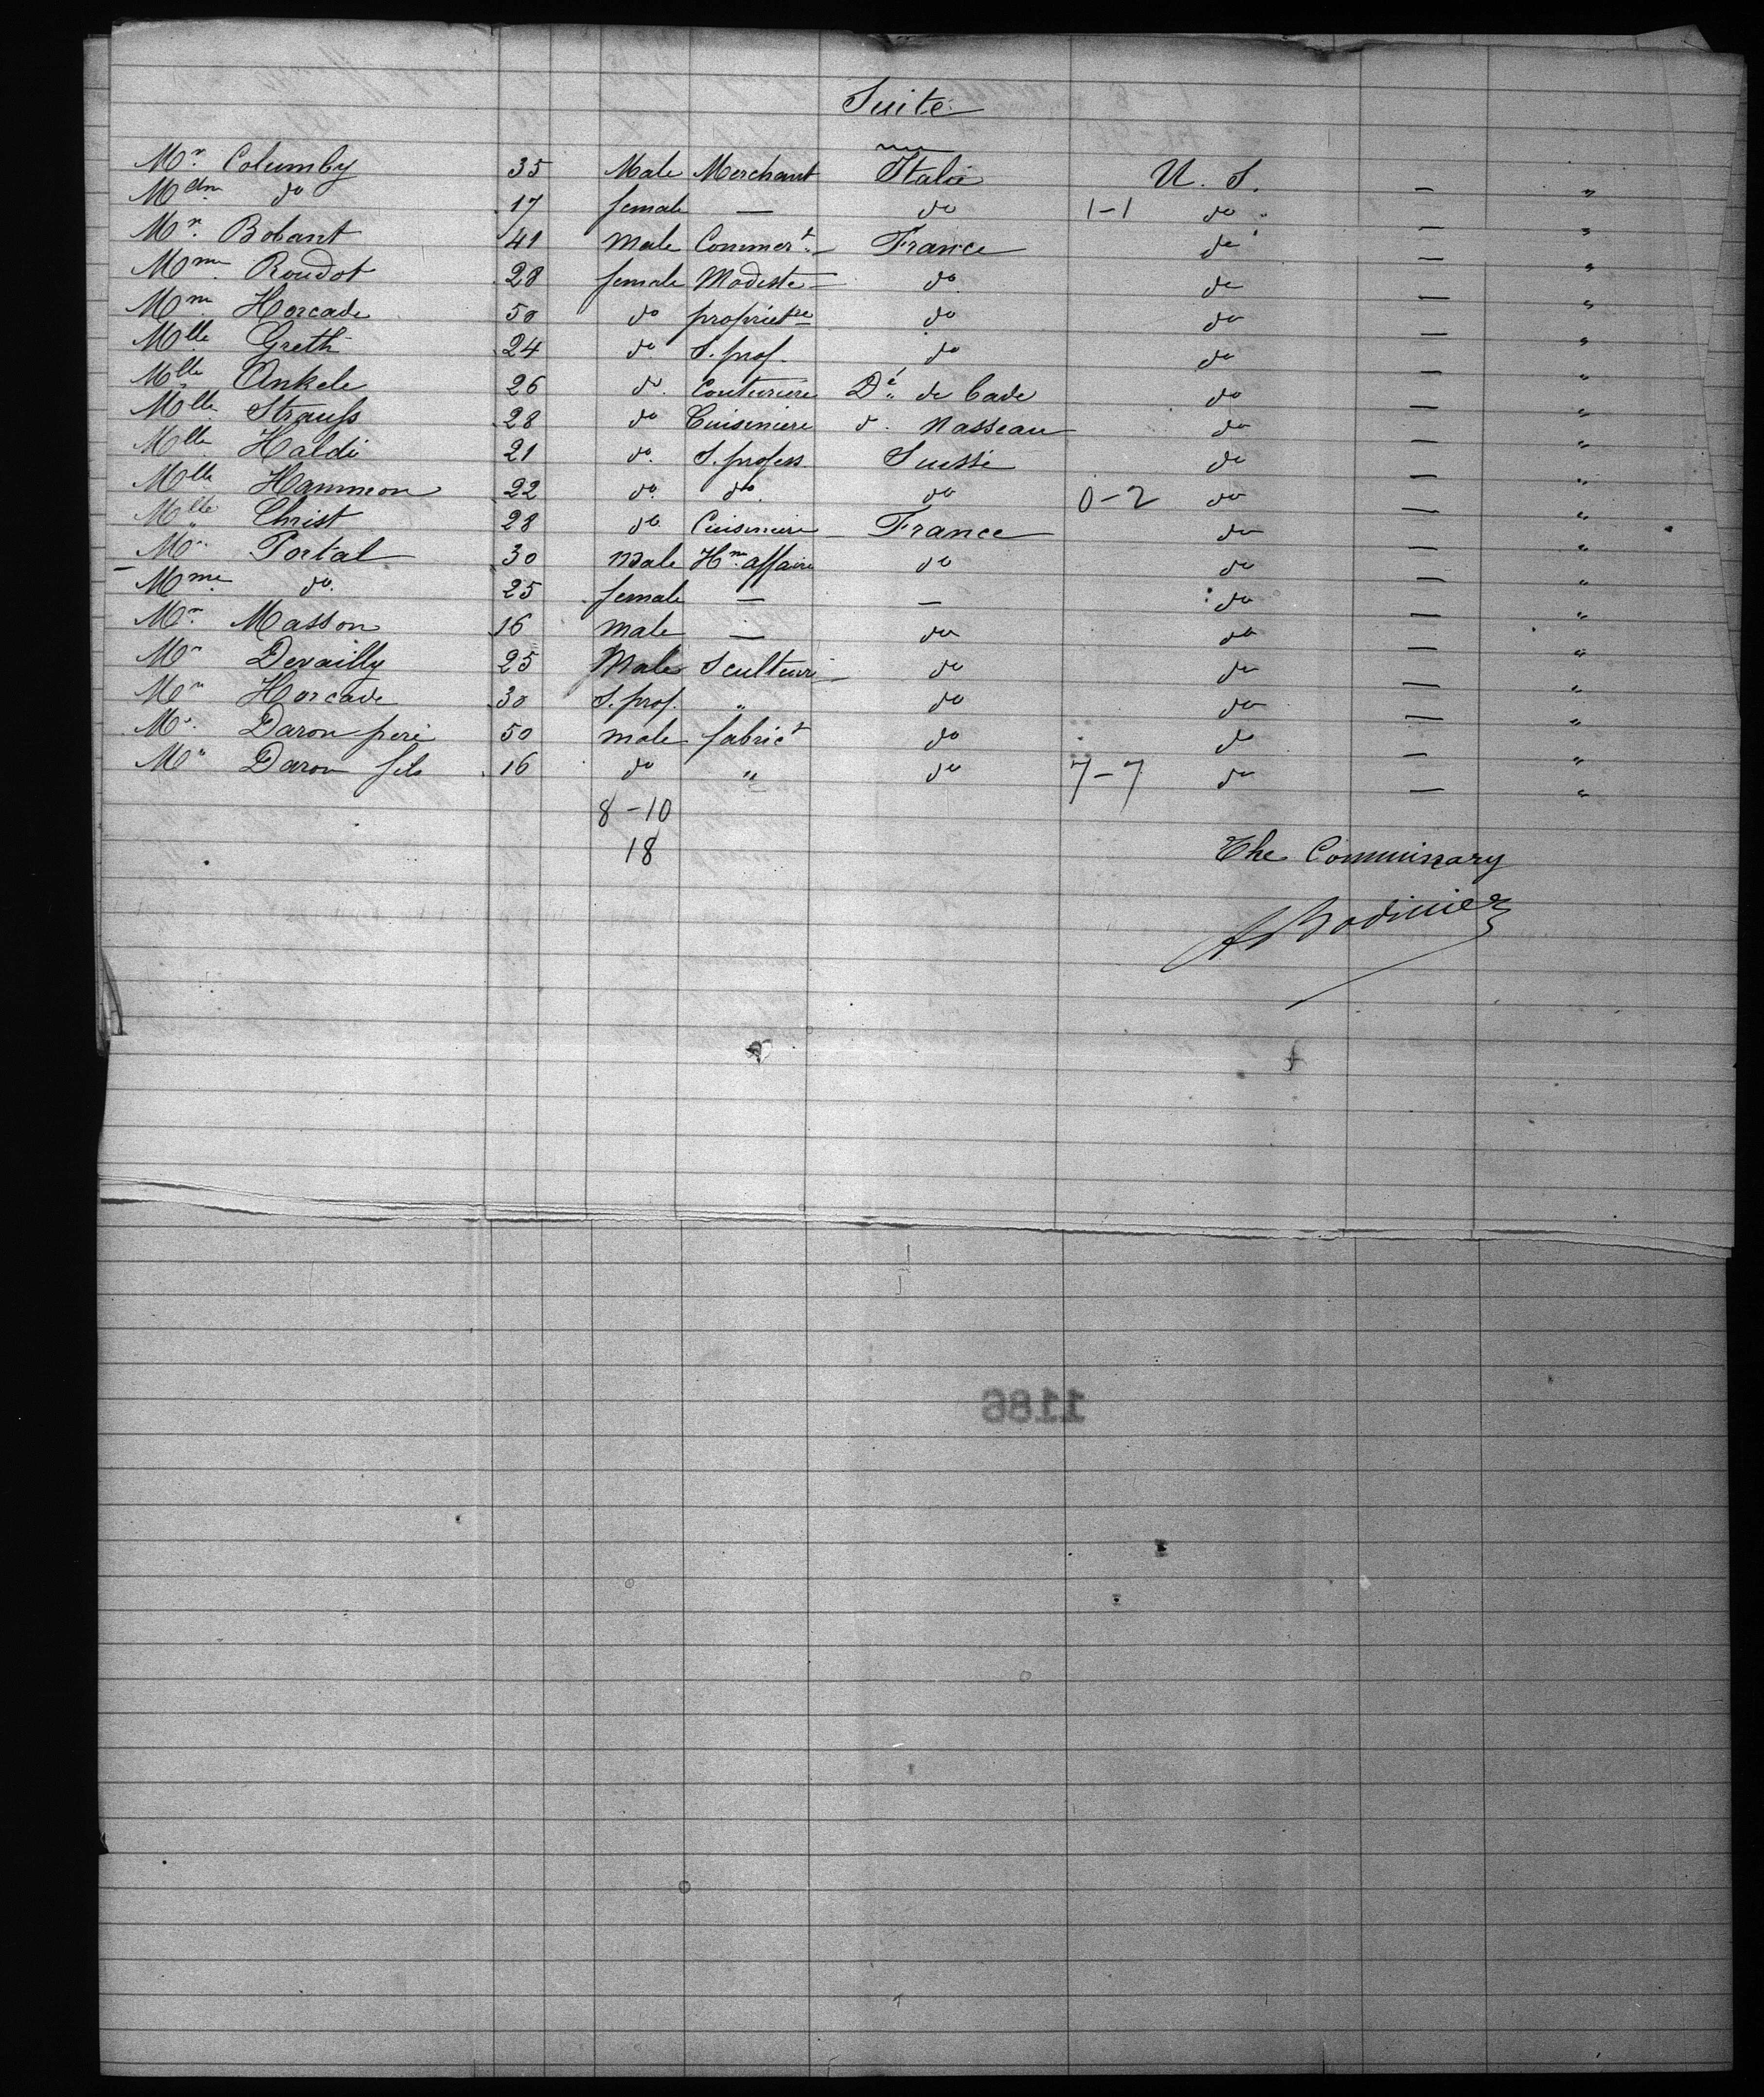 Suite
Mr. Columby 35 Male Merchant Italie U. S. — "
Mdm. do 17 female — do 1-1 do — "
Mr. Bobant 41 Male Commert. France do — "
Mme Roudot 28 female Modiste do do — "
Mme Horcade 50 do proprietre do do — "
Mlle Greth 24 do S. prof. do do — "
Mlle Ankele 26 do. Couturiere Dé de Bade do — "
Mlle Strauss 28 do Cuisiniere d. Nasseau do — "
Mlle Haldi 21 do. S. profess. Suisse do — "
Mlle Hammon 22 do. do. do 0-2 do — "
Mlle Christ 28 do Cuisiniere France do — "
Mr. Portal 30 Male Hm. affaire do do — "
Mme. do. 25 female — — do — "
Mr. Masson 16 male — do do — "
Mr Devailly 25 Male Sculteur do do — "
Mr Horcade 30 S. prof. " do do — "
Mr. Daron pere 50 male fabrict do do — "
Mr Daron fils 16 do " do 7-7 do — "
8-10
18
The Commissary
1186